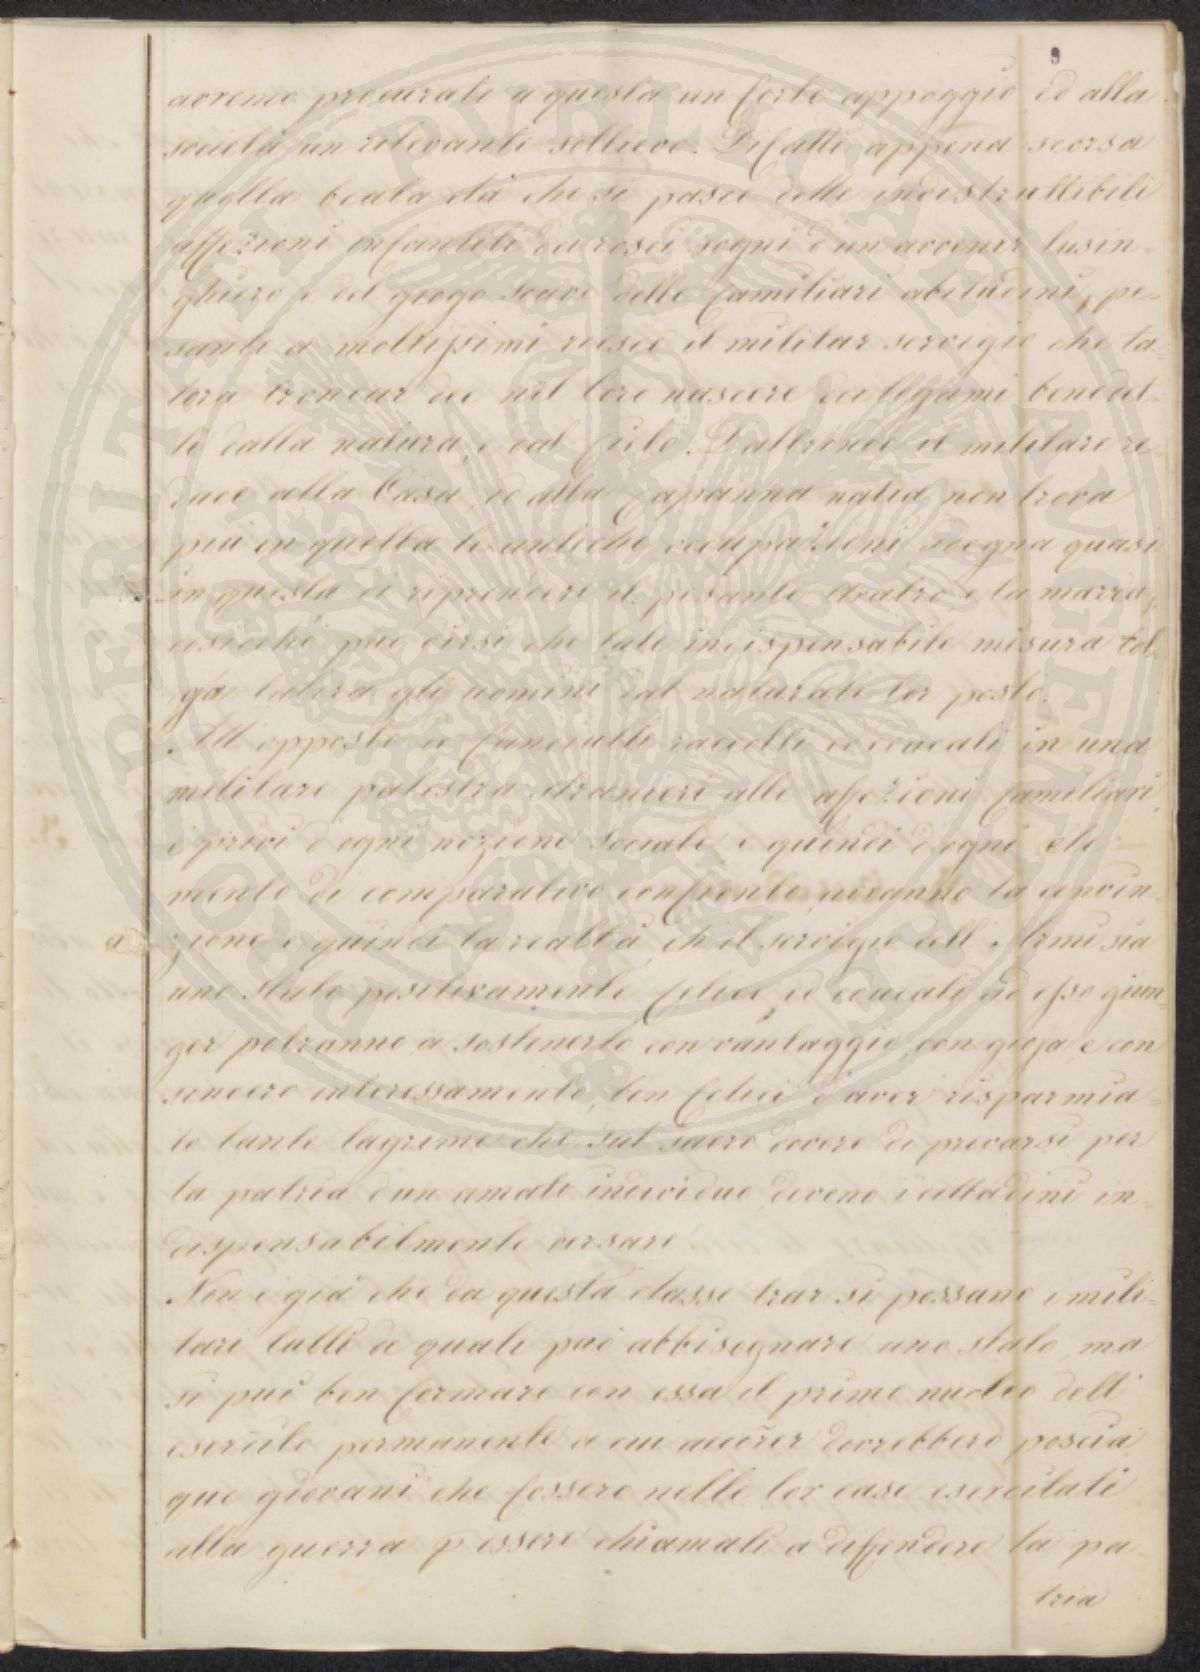 9
avremo procurato a questa un forte appoggio ed alla
società un rilevante sollievo. Difatti appena scorsa
quella beata età che si pasce delle indestruttibili
affezioni infantili dei rosei sogni d'un avvenir lusin-
ghiero e del giogo soave delle familiari abitudini, pe-
sante a moltissimi riesce il militar servigio che ta-
lora troncar dee nel loro nascere dei legami benedet-
ti dalla natura, e dal Cielo. D'altronde il militare re-
duce alla Casa, ed alla Capanna natia, non trova
più in quella le antiche occupazioni, sdegna quasi
in questa di riprendere il pesante aratro e la marra,
cosicché può dirsi che tale indispensabile misura tol-
ga talora gli uomini dal naturale lor posto.
All'opposto i fanciulli raccolti ed educati in una
militare palestra stranieri alle affezioni familiari,
e privi d'ogni nozione sociale e quindi d'ogni ele-
mento di comparativo confronto, avranno la convin-
zione e quindi la realtà, ch'il servigio dell'Armi sia
uno stato positivamente felice, ed educati ad esso giun-
ger potranno a sostenerlo con vantaggio, con gioja, e con
sincero interessamento, ben felici d'aver risparmia-
te tante lagrime che sul sacro dovere di privarsi per
la patria d'un amato individuo devono i cittadini in-
dispensabilmente versare.
Non è già che da questa classe trar si possano i mili-
tari tutti de quali può abbisognare uno stato, ma
si può ben formare con essa il primo nucleo dell'
esercito permanente a cui accorrer dovrebbero poscia
que giovani che fossero nelle lor case esercitati
alla guerra p essere chiamati a diffendere la pa-
tria